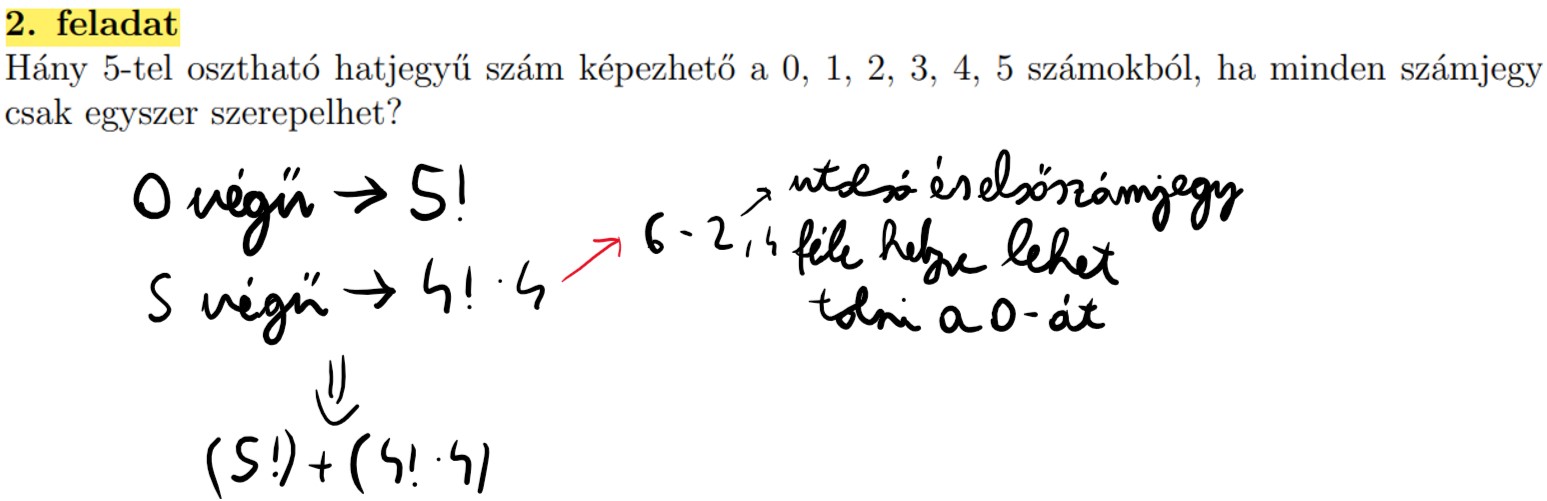 2. feladat
Hány 5-tel osztható hatjegyű szám képezhető a 0, 1, 2, 3, 4, 5 számokból, ha minden számjegy
csak egyszer szerepelhet?
0 végű → 5!
5 végű → 4! · 4
6 - 2, 4
utolsó és első számjegy
féle helyre lehet
tolni a 0-át
⇓
(5!) + (4! · 4)